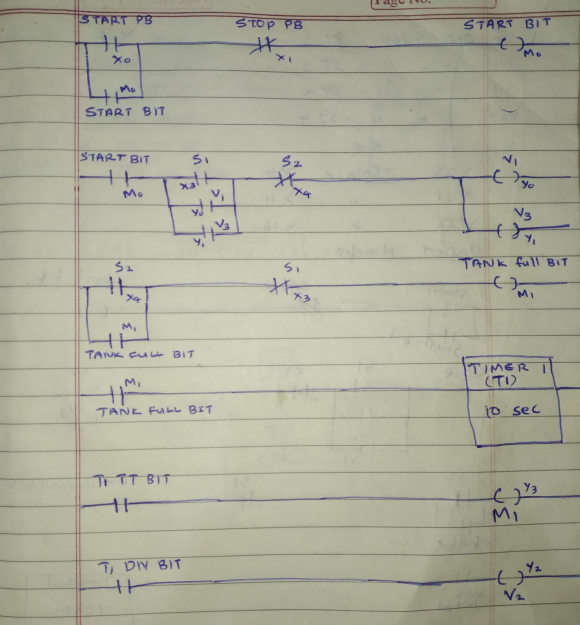 Page No.
START PB STOP PB START BIT
X0 X1 M0
M0
START BIT
START BIT S1 S2 V1
M0 X3 X4 Y0
Y0 V1
Y1 V3 V3
Y1
S2 S1 TANK full BIT
X4 X3 M1
M1
TANK FULL BIT
M1 TIMER 1
(T1)
TANK FULL BIT 10 sec
T1 TT BIT Y3
M1
T1 DN BIT Y2
V2